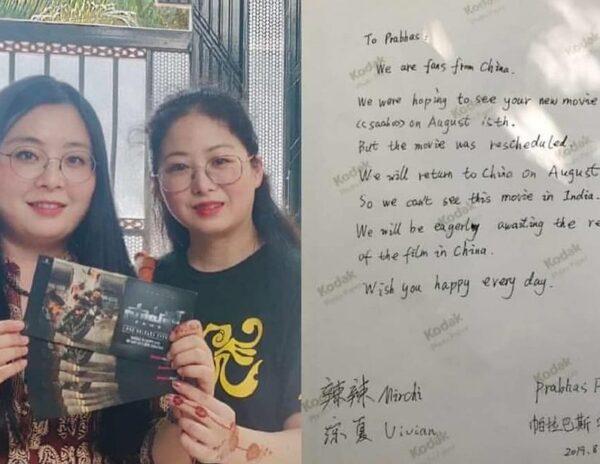 To Prabhas:
We are fans from China.
We were hoping to see your new movie
《saaho》 on August 15th.
But the movie was rescheduled.
We will return to China on August
So we can't see this movie in India.
We will be eagerly awaiting the re
of the film in China.
Wish you happy every day.
辣辣 Mirchi
深夏 Vivian
Prabhas F
帕拉巴斯
2019.8
Kodak
Kodak
Kodak
Kodak
Kodak
Kodak
Kodak
Kodak
Kodak
Kodak